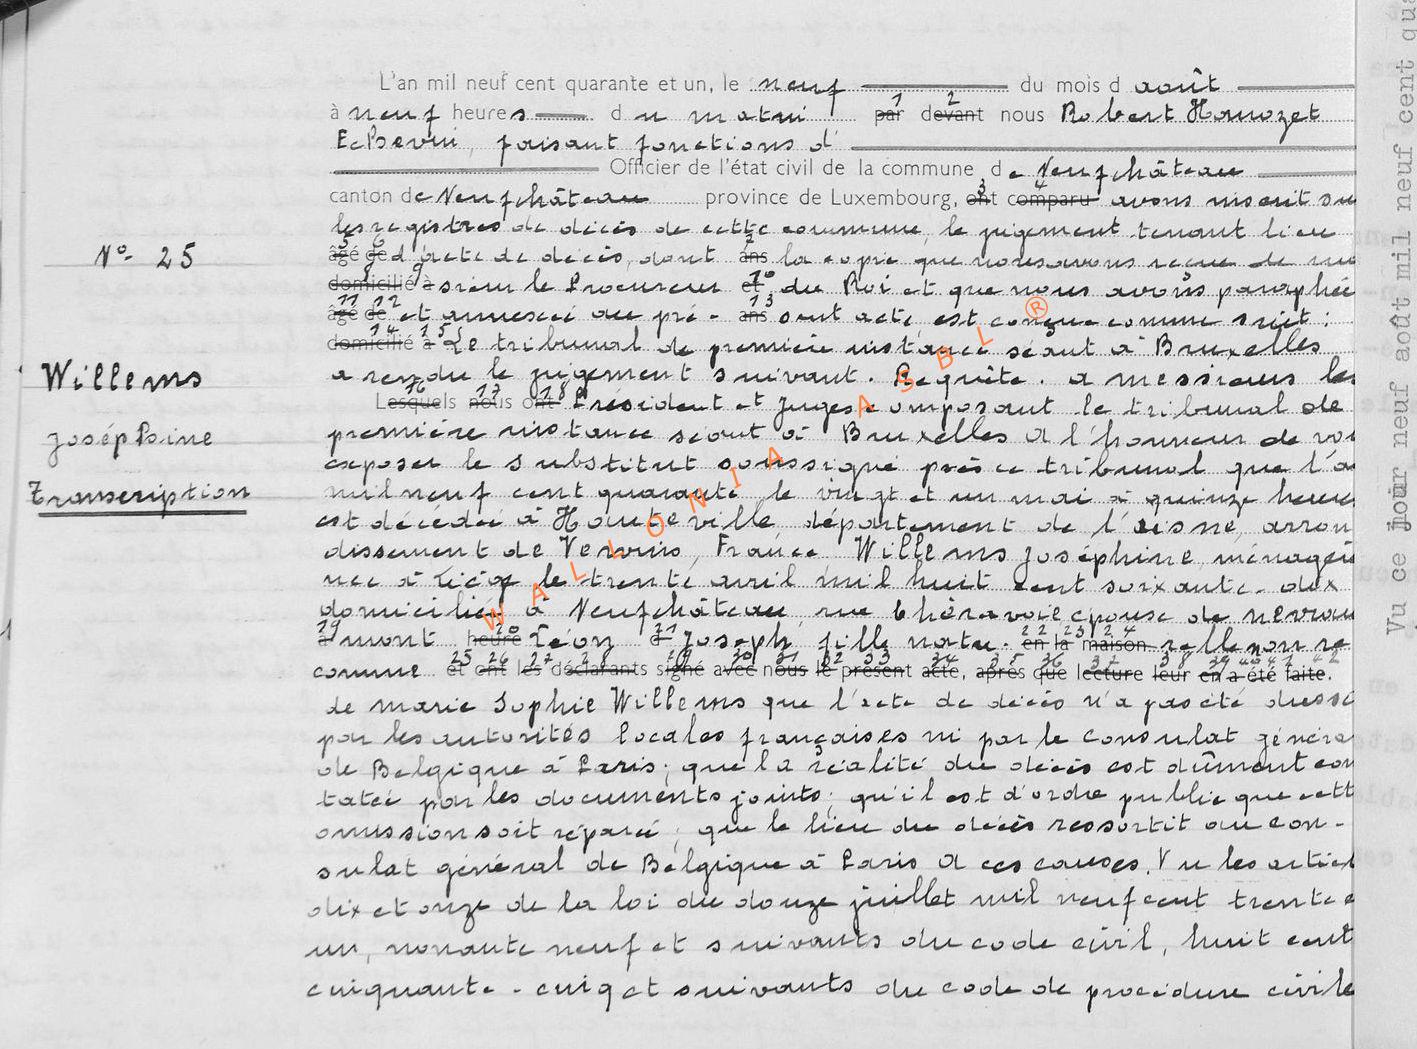 L'an mil neuf cent quarante et un, le neuf du mois d août
à neuf heures d u matin par 1 devant 2 nous Robert Hanozet
Echevin, faisant fonctions d'
Officier de l'état civil de la commune de Neufchâteau
canton de Neufchâteau province de Luxembourg, ont 3 comparu 4 avons inscrit su
les registres de décès de cette commune, le jugement tenant lieu
N° 25
âgé de d'acte de décès, dont ans la copie que nous avons reçue de
domicilié à sieur le Procureur et du Roi et que nous avons paraphée
âgé 11 de 12 et annexée au pré- ans 13 sent acte, est conçue comme suit :
domicilié 14 à 15 Le tribunal de première instance séant à Bruxelles
Willems
a rendu le jugement suivant. Requête. A messieurs les
Lesquels 16 nous 17 ont 18 Président et Juges composant le tribunal de
Joséphine
première instance séant à Bruxelles A l'honneur de vou
exposer le substitut soussigné près ce tribunal que l'a
Transcription
mil neuf cent quarante, le vingt et un mai à quinze heures
est décédée à Hauteville, département de l'aisne, arron
dissement de Vervins, France Willems Joséphine, ménagère
née à Liége le trente avril mil huit cent soixante-dix
domiciliée à Neufchâteau, rue épouse de
à 19 mont heure 20 Léon et 21 Joseph, fille natu- en 22 la 23 maison 24 relle non re
connue et 25 ont 26 les 27 déclarants 28 signé 29 avec 30 nous 31 le 32 présent 33 acte, 34 après 35 que 36 lecture 37 leur 38 en 39 a 40 été 41 faite. 42
de Marie Sophie Willems que l'acte de décès n'a pas été dressé
par les autorités locales françaises ni par le consulat général
de Belgique à Paris; que la réalité du décès est dûment con
tatée par les documents joints; qu'il est d'ordre public que cett
omission soit réparée; que le lieu du décès ressortit au con-
sulat général de Belgique à Paris A ces causes, Vu les articl
dix et onze de la loi du douze juillet mil neuf cent trente e
un, nonante neuf et suivants du code civil, huit cent
cinquante-cinq et suivants du code de procédure civile
WALLONIA ASBL ®
Vu ce jour neuf août mil neuf cent qua